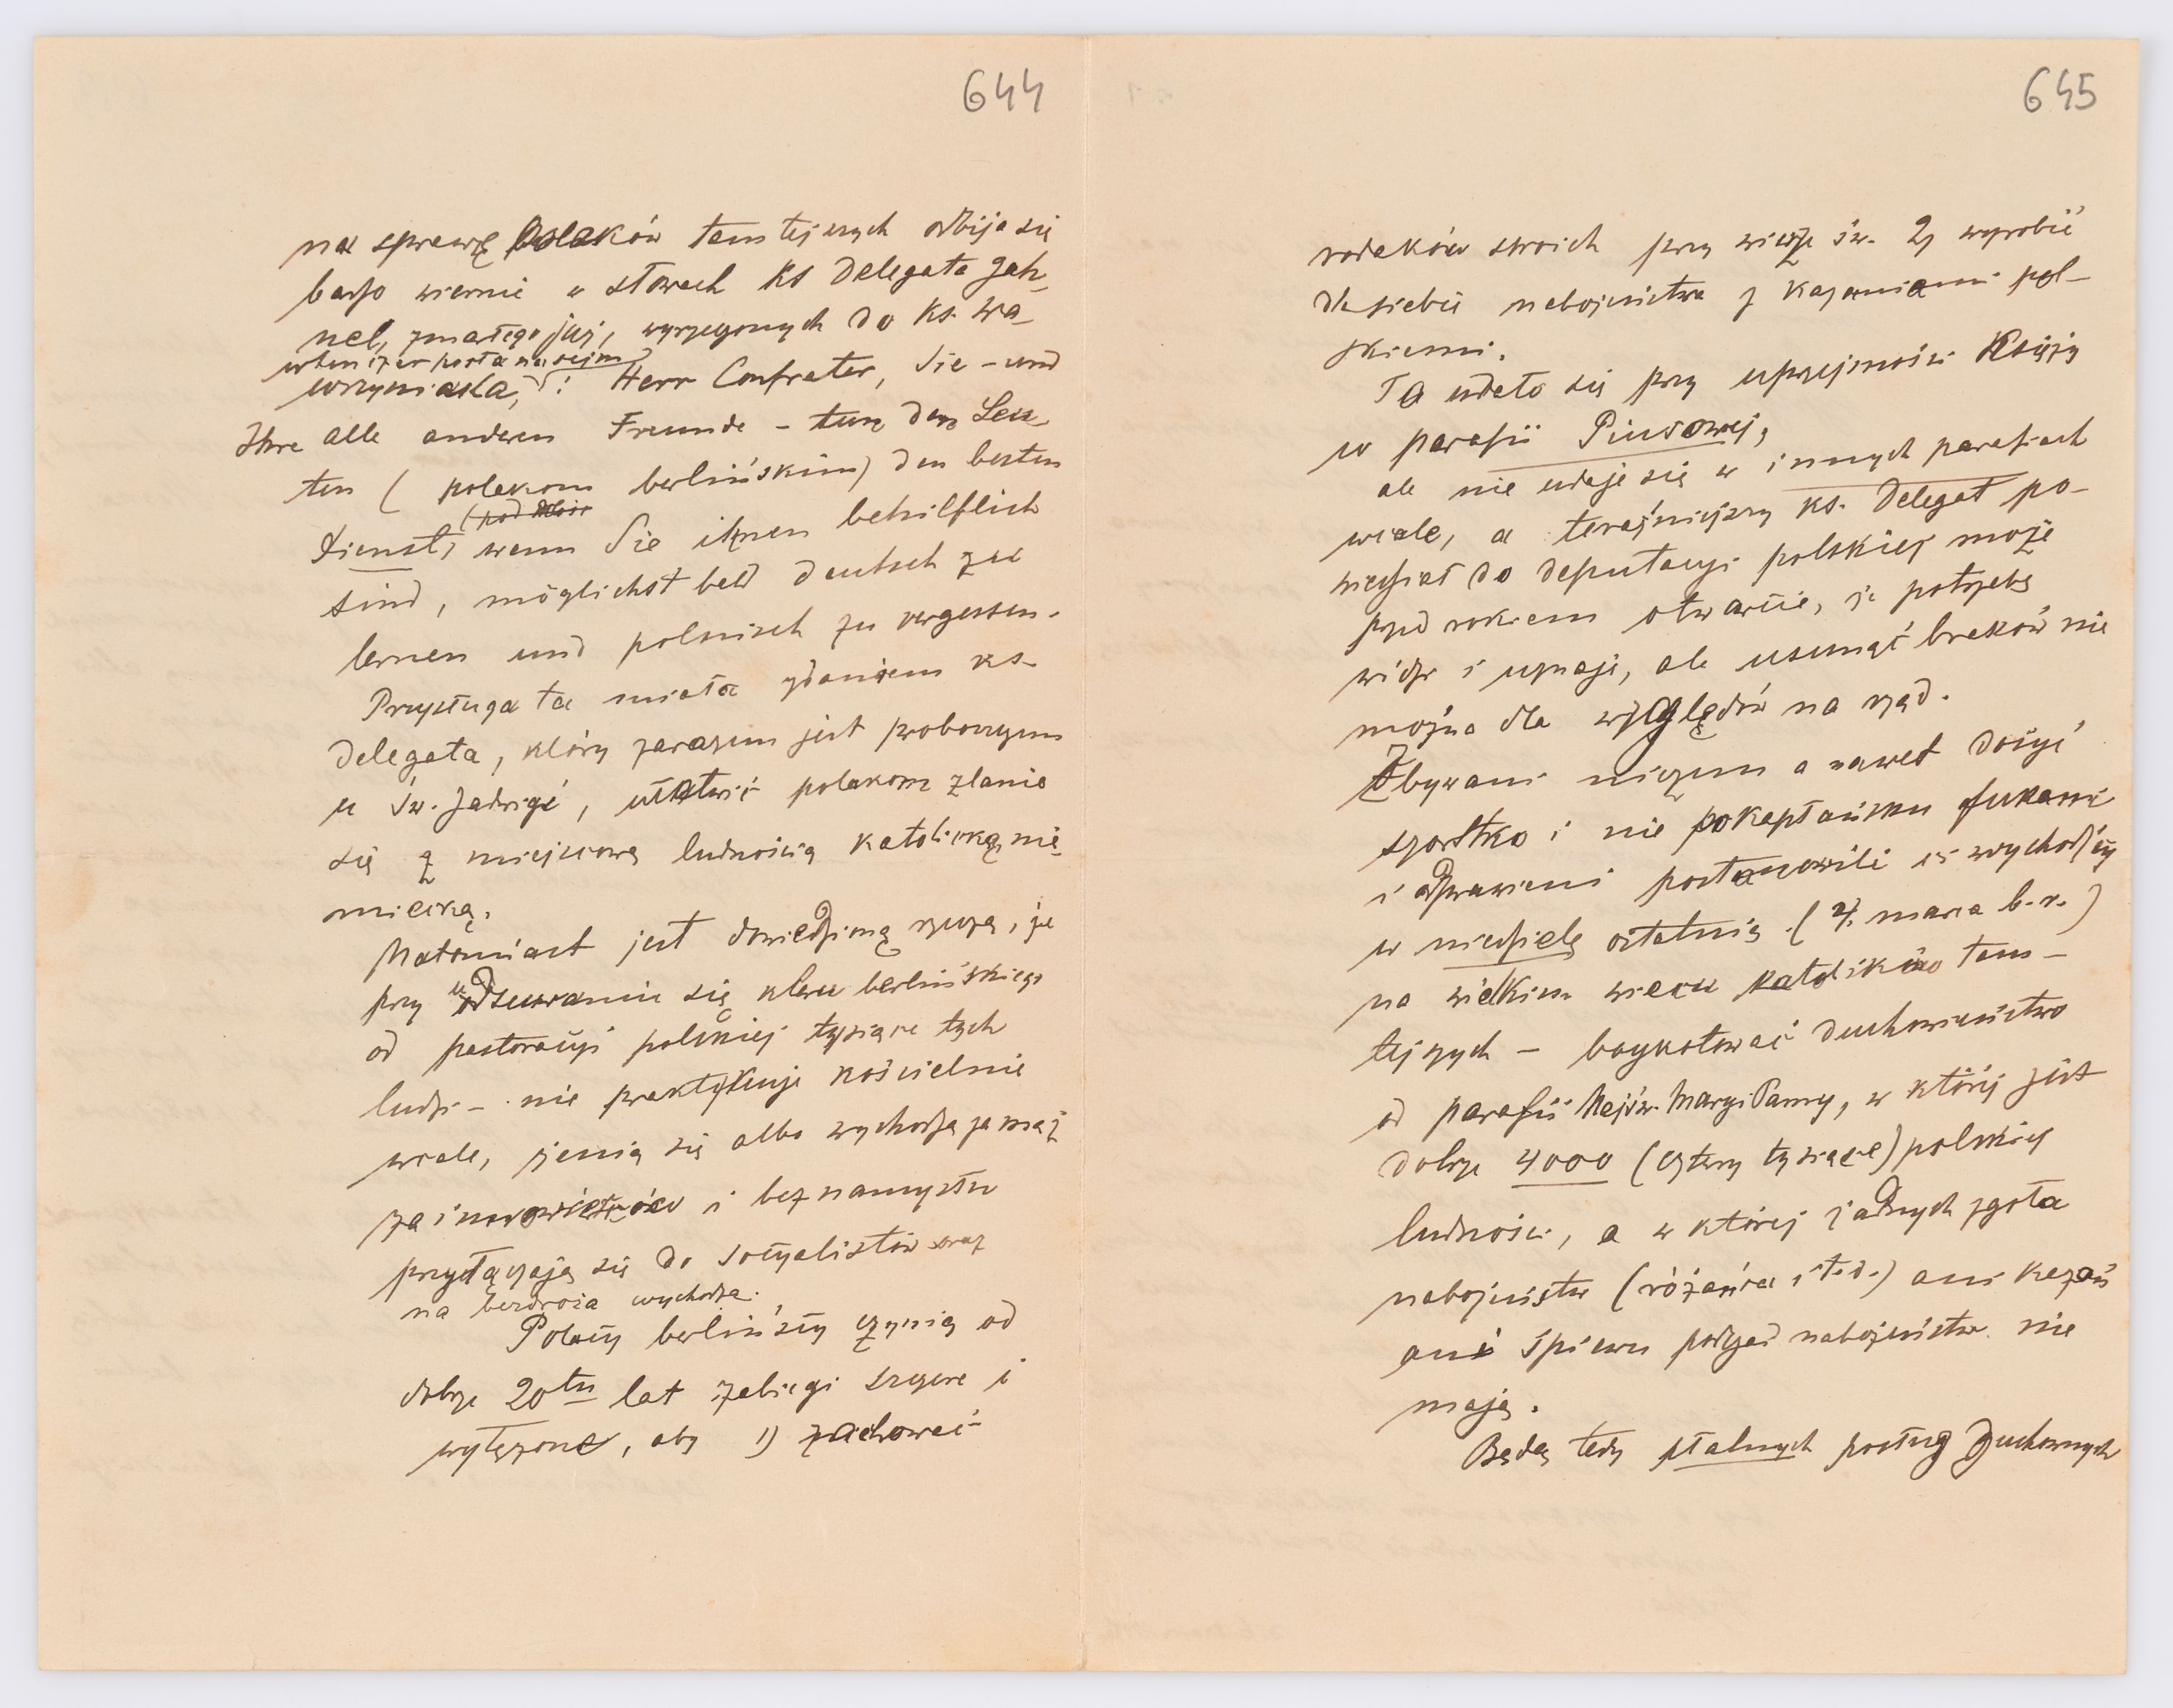 644
na sprawę Polaków tamtejszych odbija się
bardzo wiernie w słowach ks Delegata Jah-
nel, zmarłego już, wyrzeczonych do ks. Wa-
wrzyniaka, : Herr Confrater, Sie - und
posła na sejm
Ihre alle anderen Freunde - tun den Leu-
ten ( polakom berlińskim) den besten
(pod
Dienst, wenn Sie ihnen behilflich
sind, möglichst bald deutsch zu
lernen und polnisch zu vergessen.
Przysługa ta miała zdaniem ks.
Delegata, który zarazem jest proboszczem
u św. Jadwigi, ułatwić polakom zlanie
się z miejscową ludnością katolicką nie-
miecką.
Natomiast jest dowiedzioną rzeczą, że
przy usuwaniu się kleru berlińskiego
od pastoracyi polskiej tysiące tych
ludzi - nie praktykuje kościelnie
wcale, żenią się albo wychodzą za mąż
za innowierców i bez namysłu
przyłączają się do socyalistów oraz
na bezdroża wychodzą.
Polacy berlińscy czynią od
dobrze 20tu lat zabiegi szczere i
wytężone, aby 1) zachować
645
rodaków swoich przy wierze św. 2) wyrobić
dla siebie nabożeństwa z kazaniami pol-
skiemi.
To udało się przy uprzejmości Księży
w parafii Piusowej,
ale nie udaje się w innych parafiach
wcale, a terazniejszy ks. Delegat po-
wiedział do deputacyi polskiej może
przed rokiem otwarcie, że potrzebę
widzi i uznaje, ale usunąć braków nie
można dla względów na rząd.
Zbywani niczem a nawet dosyć
szorstko i nie po kapłańsku fukani
i odprawieni postanowili ci wychodźcy
w niedzielę ostatnią (4. marca b.r.)
na wielkim wiecu katolików tam-
tejszych - boykotować duchowieństwo
od parafii Najśw. Maryi Panny, w której jest
dobrze 4000 (cztery tysiące) polskiej
ludności, a w której żadnych zgoła
nabożeństw (różańca i t.d.) ani kazań
ani śpiewu podczas nabożeństw nie
mają.
Będą tedy stalnych posług duchownych